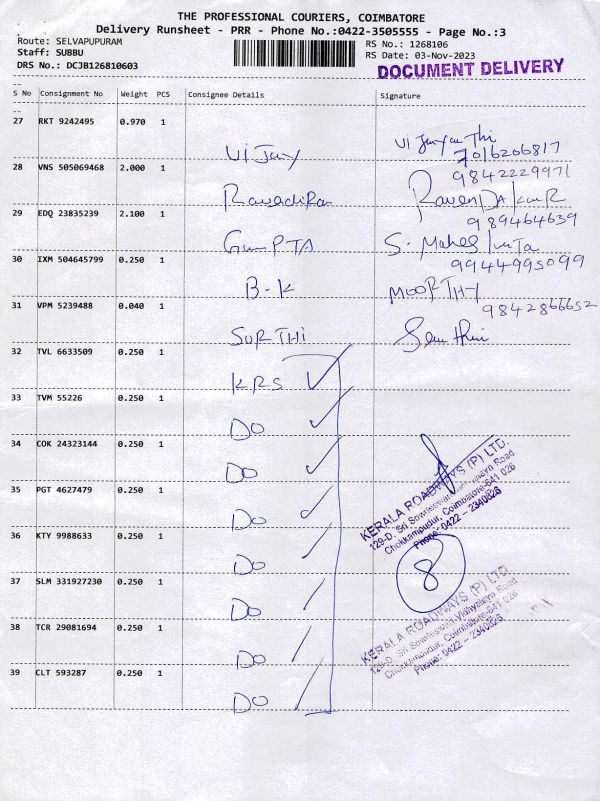 THE PROFESSIONAL COURIERS, COIMBATORE
Delivery Runsheet - PRR - Phone No.:0422-3505555 - Page No.:3
Route: SELVAPUPURAM
RS No.: 1268106
Staff: SUBBU
RS Date: 03-Nov-2023
DRS No.: DCJB126810603
DOCUMENT DELIVERY
S No Consignment No Weight PCS Consignee Details Signature
27 RKT 9242495 0.970 1
Vijay
7016206817
28 VNS 505069468 2.000 1
9842229971
29 EDQ 23835239 2.100 1
989464639
GUPTA S. Mahes
30 IXM 504645799 0.250 1
9944995099
B-K MOORTHY
31 VPM 5239488 0.040 1
9842866652
SURTHI
32 TVL 6633509 0.250 1
KRS
33 TVM 55226 0.250 1
DO
34 COK 24323144 0.250 1
DO
KERALA ROADWAYS (P) LTD.
129-D, Sri Sowdeswari Vidhyalaya Road
Chokkampudur, Coimbatore-641 026
Phone: 0422 - 2340826
35 PGT 4627479 0.250 1
DO
36 KTY 9988633 0.250 1
DO
8
37 SLM 331927230 0.250 1
DO
KERALA ROADWAYS (P) LTD.
129-D, Sri Sowdeswari Vidhyalaya Road
Chokkampudur, Coimbatore-641 026
Phone: 0422 - 2340826
38 TCR 29081694 0.250 1
DO
39 CLT 593287 0.250 1
DO